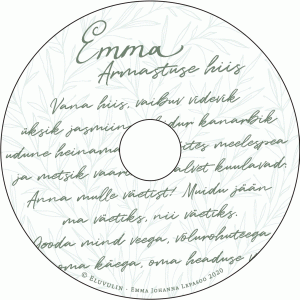 Emma
Armastuse hiis
Vana hiis, vaibuv videvik
üksik jasmiin kanarbik
udune heinama meelespea
ja metsik vaar alvet kuulavad.
Anna mulle väetist! Muidu jään
ma väetiks, nii väetiks.
Jooda mind veega, võlurohuteega
oma käega, oma headuse
© Eluvulin · Emma Johanna Lepasoo 2020